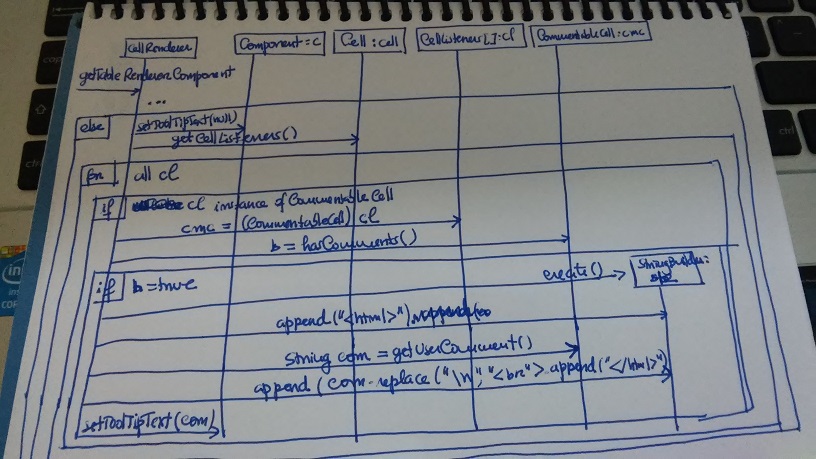 CellRenderer
Component:c
Cell:cell
CellListeners[]:cl
CommentableCell:cmc
getTableRendererComponent
...
else
setToolTipText(null)
getCellListeners()
for
all cl
if
cl instance of CommentableCell
cmc = (CommentableCell) cl
b = hasComments()
if
b=true
create()
StringBuilder:
append("<html>")
String com = getUserComment()
append (com.replace("\n","<br"> append("</html>")
setToolTipText(com)
intel
ctrl